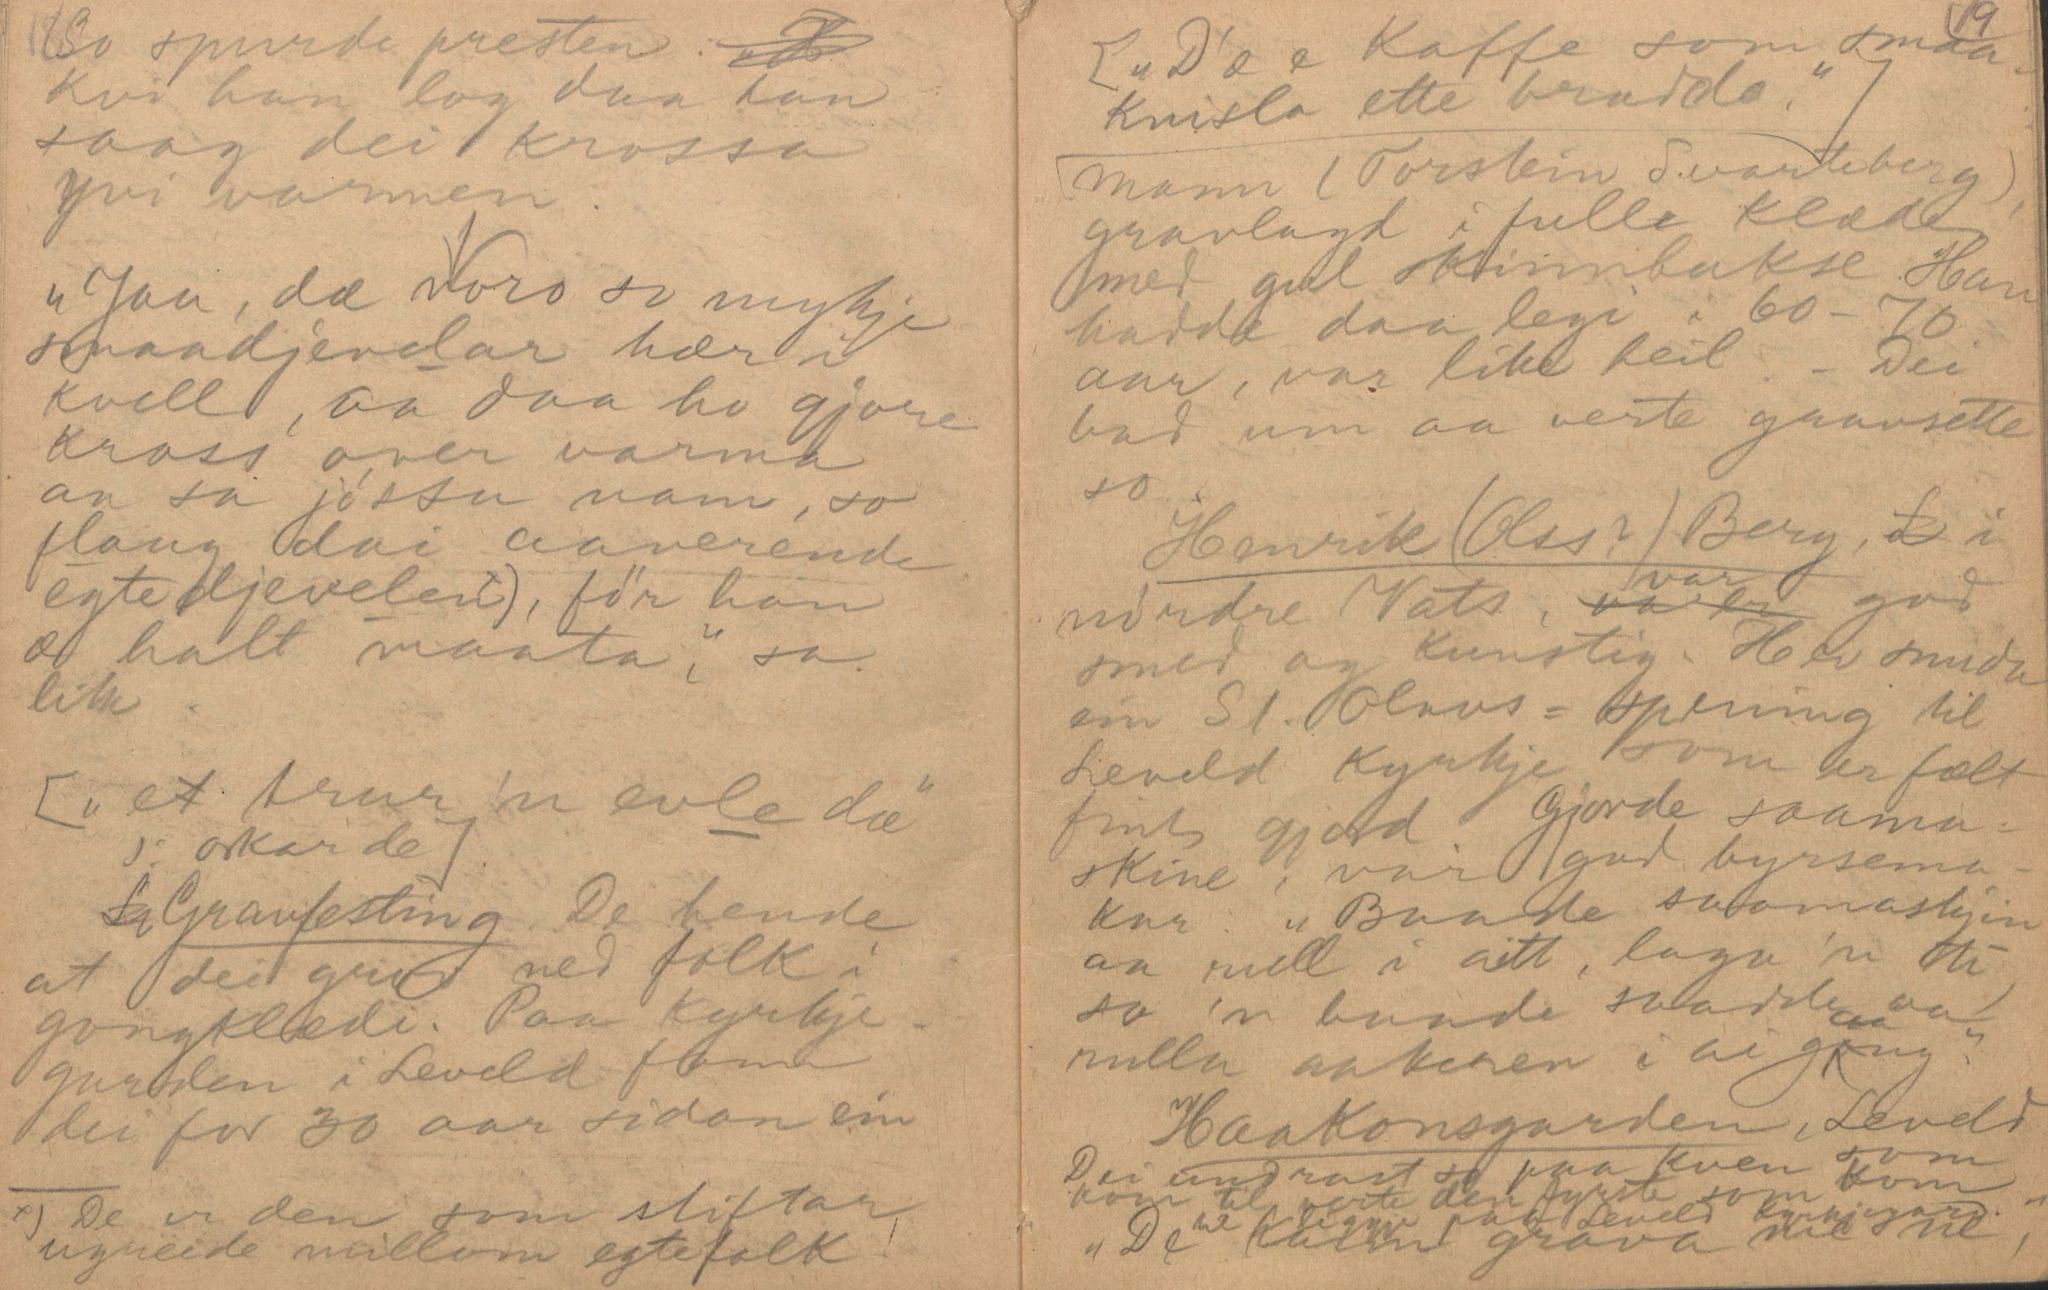 18
So spurde presten
kvi han log daa han
saag dei krossa
yvi varmen.
"Jau, dæ voro so mykje
smaadjevlar hær i
kveld, aa daa ho gjore
kross over varma
aa sa jóssu nam, so
flaug dai aaverende
egtedjevelen x), för han
æ halt maata", sa
lik.
["et trur 'n evle dæ"
ɔ: orkar de].
Gravfesting. De hende
at dei grov ned folk i
gongklædi. Paa kyrkje-
garden i Leveld fann
dei for 30 aar sidan ein
x) De er den som stiftar
ugreide millom egtefolk!
19
["D'æ e kaffe som smaa-
knisla ette bradde."]
mann (Torstein Svarteberg),
gravlagd i fulle klæde
med gul skinnbukse. Han
hadde daa legi i 60-70
aar, var like heil. - Dei
bad um aa verte gravsette
so.
Henrik (Olss?) Berg, i
nørdre Vats, var god
smed og kunstig. Hev smida
ein St. Olavs-spening til
Leveld kyrkje som er fælt
fint gjord. Gjorde saama-
skine, var god byrsema-
kar. "Baade saamaskjin
aa rull i aitt, laga 'n ti
so 'n baade saadde aa
rulla aakeren i ai gaang".
Haakonsgarden, Leveld
Dei undrast so paa kven som
kom til verte den fyrste som kom
te liggje paa Leveld kyrkjegard.
"De kainn grava me ne,